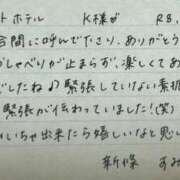 トホテル K様が R8.
合間に呼んで下さり、ありがとう
おしゃべりが止まらず、楽しくてあ
でしたね 緊張していない素振
緊張が伝わっていました!(笑)
いちゃ出来たら嬉しいなと思い
新條 すみ